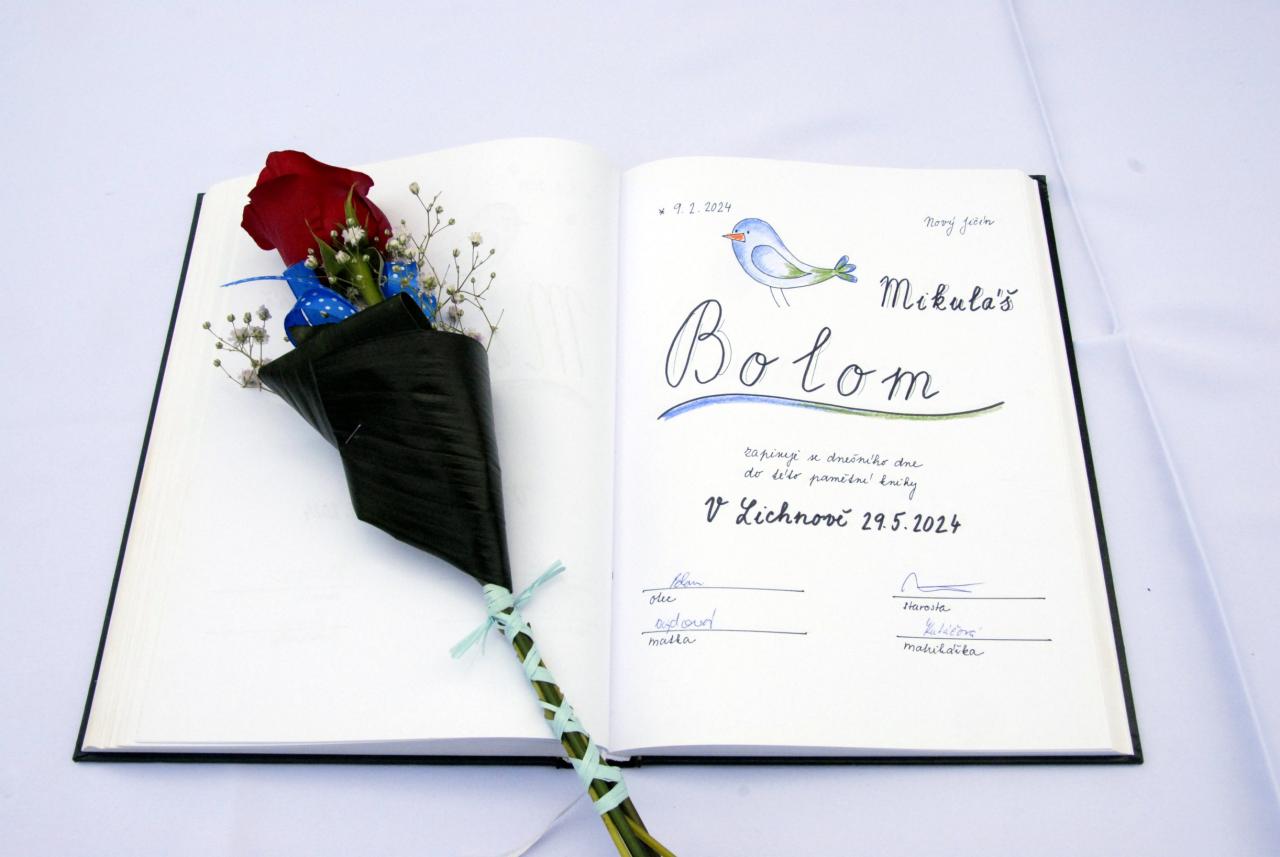 * 9. 2. 2024
Nový Jičín
Mikuláš
Bolom
zapisuji se dnešního dne
do této pamětní knihy
V Lichnově 29.5.2024
otec
starosta
matka
matrikářka